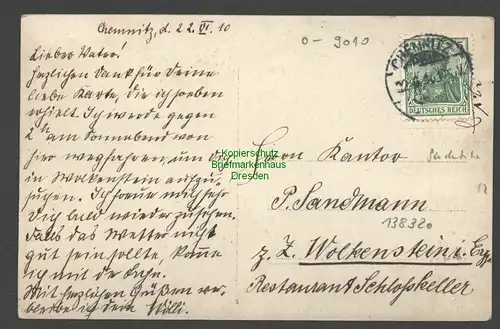 Chemnitz, d. 22. VI. 10
Lieber Vater!
herzlichen Dank für Deine
liebe Karte, die ich soeben
erhielt. Ich werde gegen
2 h am Sonnabend von
hier wegfahren, um Dich
in Wolkenstein aufzu-
suchen. Ich freue mich sehr
Dich bald wieder zu sehen.
Falls das Wetter nicht
gut sein sollte, komme
ich mit der Bahn.
Mit herzlichen Grüßen ver-
bleibe ich dein Willi.
0-9010
CHEMNITZ
DEUTSCHES REICH
Kopierschutz
Briefmarkenhaus
Dresden
Herrn Kantor
P. Sandmann
138320
z. Z. Wolkenstein i. Erzg.
Restaurant Schloßkeller